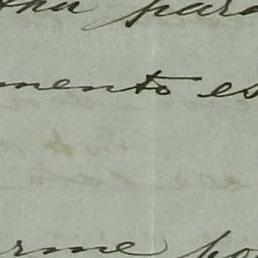 para
mento es
rme po